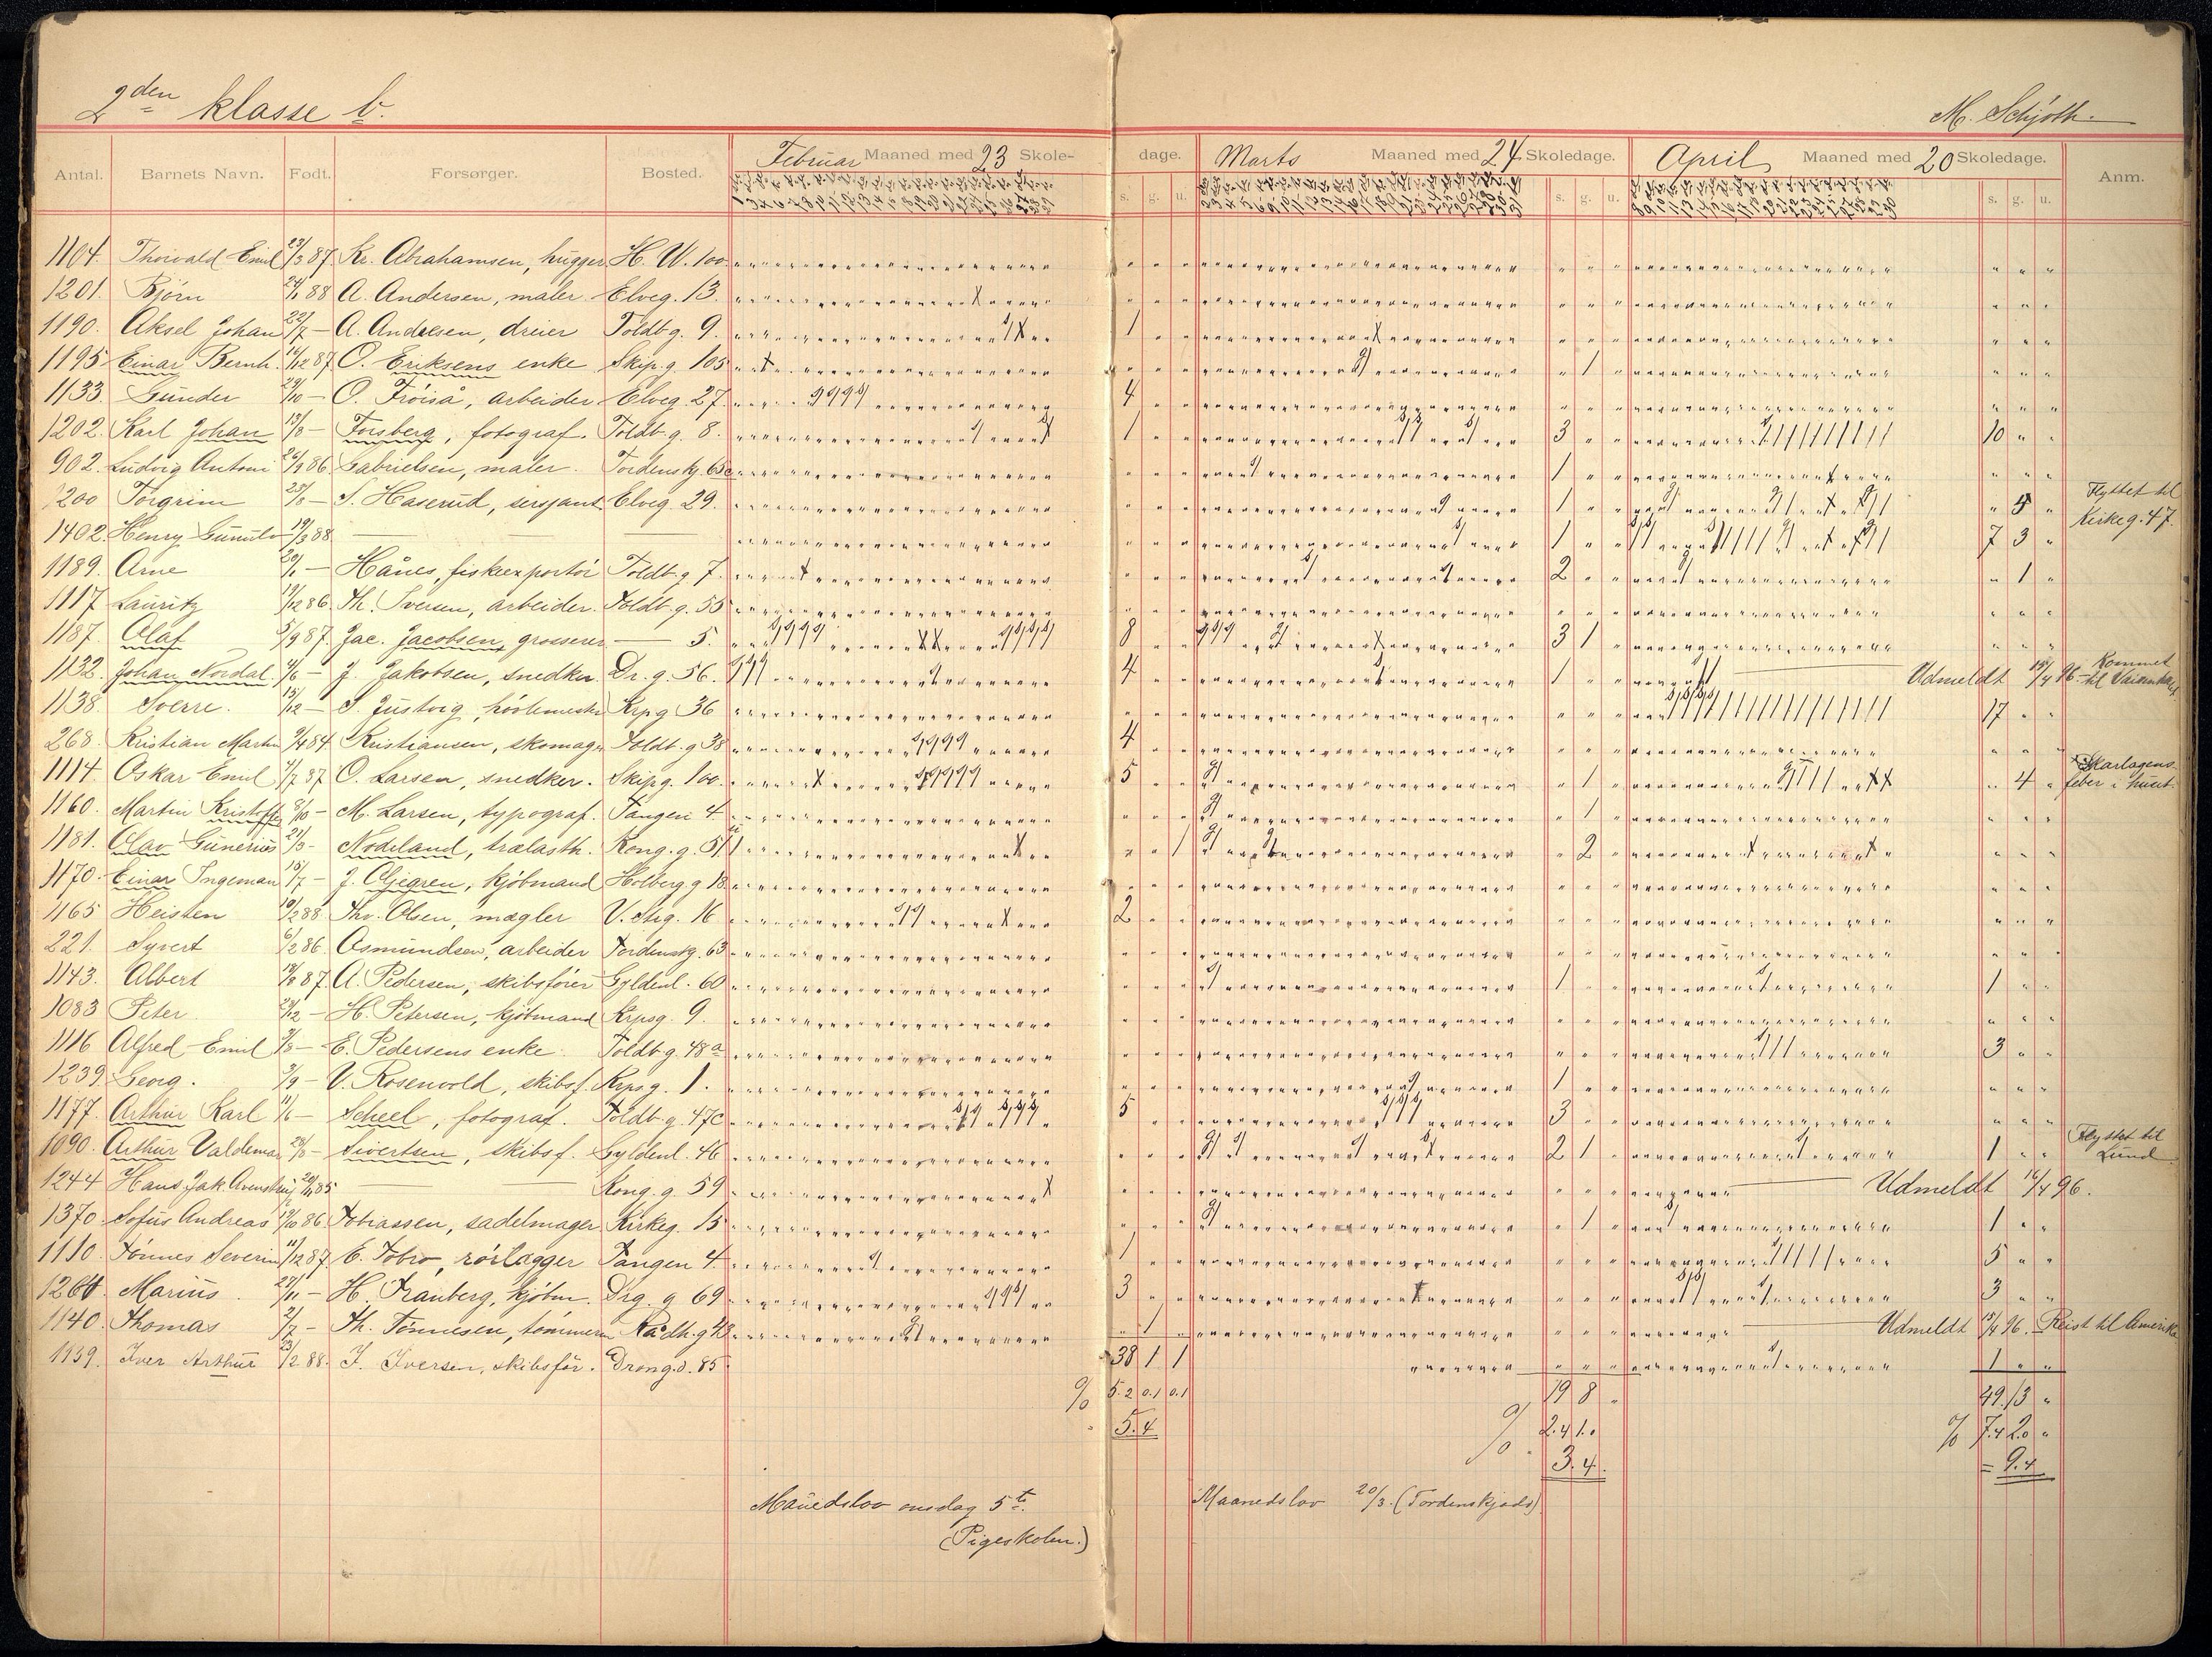 2den klasse b.
M. Schjøth.
Antal. Barnets Navn. Født. Forsørger. Bosted. Februar Maaned med 23 Skole- dage. Marts Maaned med 24 Skoledage. April Maaned med 20 Skoledage. Anm.
s. g. u. s. g. u. s. g. u.
1104. Thorvald Emil 23/3 87. Kr. Abrahamsen, hugger H. W. 100
1201. Bjørn 24/1 88 A. Andersen, maler Elveg. 13.
1190. Aksel Johan 22/7 — A. Andresen, dreier Toldb.g. 9. 1
1195 Einar Bernh. 16/12 87 O. Eriksens enke Skip.g. 105 1
1133. Gunder 29/10 — O. Frøiså, arbeider Elveg. 27. 4
1202. Karl Johan 13/8 — Forsberg, fotograf. Toldb.g. 8. 1 3 10
902. Ludvig Antoni 26/9 86 Gabrielsen, maler. Tordenskg. 65c 1
200 Torgrim 25/8 — S. Haserud, sersjant Elveg 29. 1 5 Flyttet til
1402. Henry Gunulv 19/3 88 — — — 1 7 3 Kirkeg. 47.
1189. Arne 20/1 — Hånes, fiskeexportør Toldb.g. 7. 2 1
1117 Lauritz 19/12 86. Th. Iversen, arbeider. Toldb.g. 55
1187. Olaf 5/9 87. Jac. Jacobsen, grosserer — 5. 8 3 1
1132. Johan Nordal. 4/6 — J. Jakobsen, snedker. Dr.g. 56. 4 1 Udmeldt 15/4 96. Kommet til
1138. Sverre. 15/12 — S. Justvig, høvlemester Krpg 36 17
268. Kristian Martin 9/4 84 Kristiansen, skomager Toldb.g 38 4
1114. Oskar Emil 4/7 87 O. Larsen, snedker. Skipg. 100. 5 1 4 Skarlagens-feber i huset.
1160. Martin Kristoffer 8/10 — M. Larsen, typograf. Tangen 4 1
1181. Olav Gunerius 21/3 — Nodeland, trælasth. Kong.g. 51 1 2
1170. Einar Ingeman 15/7 — J. Oljegren, kjøbmand Holberg.g 18.
1165 Heisten 10/2 88. Thv. Olsen, mægler V. Strg. 16 2
221. Syvert 6/2 86. Osmundsen, arbeider Tordenskg. 63
1143. Albert 19/8 87. A. Pedersen, skibsfører Gyldenl. 60 1 1
1083 Peter 29/12 — H. Petersen, kjøbmand Krpsg. 9.
1116 Alfred Emil 3/8 — E. Pedersens enke. Toldb.g. 48a 3
1239. Georg. 3/9 — V. Rosenvold, skibsf. Krpsg. 1. 1
1177. Arthur Karl 11/6 — Scheel, fotograf. Toldb.g. 47c 5 3
1090. Arthur Valdemar 28/8 — Sivertsen, skibsf. Gyldenl. 46 2 1 1 Flyttet til Lund
1244 Hans Jak. 20/11 85 — Kong.g. 59 Udmeldt 16/4 96.
1370. Sofus Andreas 19/10 86 Tobiassen, sadelmager Kirkeg. 15 1 1
1110. Tønnes Severin 11/12 87. E. Tobro, rørlægger Tangen 4. 1 5
1264 Marius. 27/11 — H. Tranberg, kjøbm. Drg. g 69 3 3
1140. Thomas 2/7 — Th. Tønnesen, tømmerm Raadh.g 43 1 Udmeldt 15/4 96. Reist til Amerika
1139. Iver Arthur 23/2 88. I. Iversen, skibsfør. Drong.d. 85. 38 1 1 1
% 5.2 0.1 0.1 19 8 49. 13
5.4 % 2.4 1.0 % 7.4 2.0
3.4. = 9.4
Månedslov onsdag 5te. Maanedslov 20/3. (Tordenskjolds)
(Pigeskolen.)